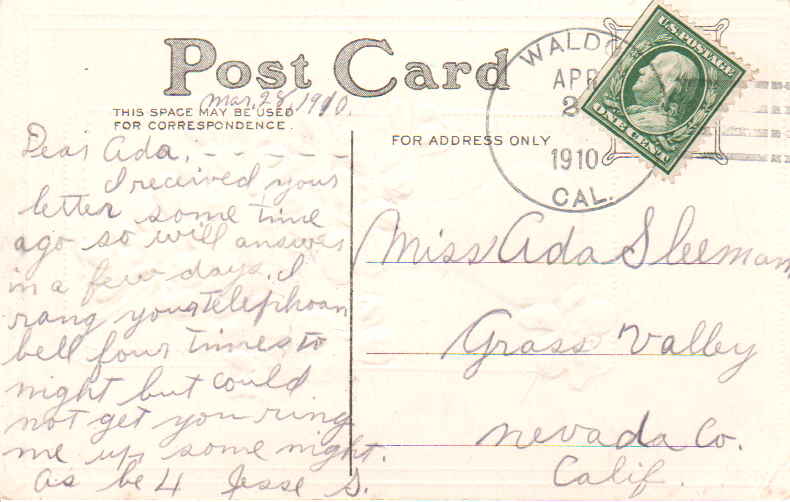 Post Card
Mar. 28, 1910.
THIS SPACE MAY BE USED
FOR CORRESPONDENCE.
FOR ADDRESS ONLY
WALDO
APR
2
1910
CAL.
U.S. POSTAGE
ONE CENT
Dear Ada, - - - - -
I received your
letter some time
ago so will answer
in a few days. I
rang your telephoan
bell four times to
night but could
not get you ring
me up some night.
as be 4 Jesse S.
Miss Ada Sleeman
Grass Valley
Nevada Co.
Calif.